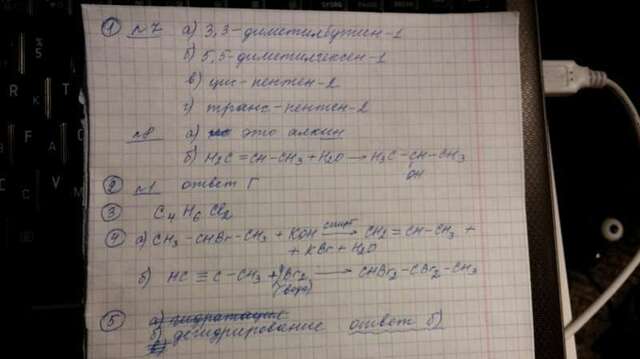 ① №7 а) 3,3-диметилбутин-1
б) 5,5-диметилгексен-1
в) цис-пентен-2
г) транс-пентен-2
№8 а) это алкин
б) H₂C=CH-CH₃+H₂O→H₃C-CH-CH₃
OH
② №1 ответ Г
③ C₄H₆Cl₂
④ а) CH₃-CHBr-CH₃ + KOH спирт→ CH₂=CH-CH₃ +
+ KBr + H₂O
б) HC≡C-CH₃ + Br₂ → CHBr₂-CBr₂-CH₃
(вода)
⑤ а) гидратация
б) дегидрирование ответ б)